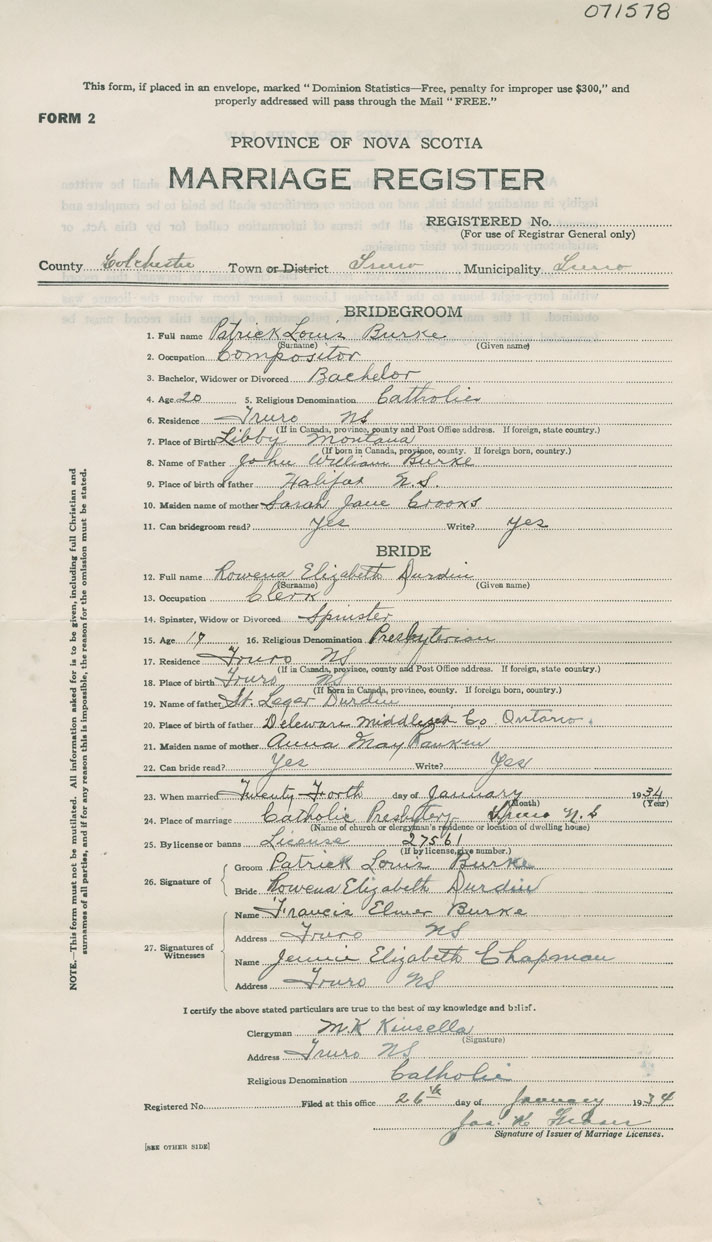 071578
This form, if placed in an envelope, marked "Dominion Statistics—Free, penalty for improper use $300," and
properly addressed will pass through the Mail "FREE."
FORM 2
PROVINCE OF NOVA SCOTIA
MARRIAGE REGISTER
REGISTERED No.
(For use of Registrar General only)
County Colchester Town or District Truro Municipality Truro
BRIDEGROOM
1. Full name Patrick Louis Burke
(Surname) (Given name)
2. Occupation Compositor
3. Bachelor, Widower or Divorced Bachelor
4. Age 20 5. Religious Denomination Catholic
6. Residence Truro NS
(If in Canada, province, county and Post Office address. If foreign, state country.)
7. Place of Birth Libby Montana
(If born in Canada, province, county. If foreign born, country.)
8. Name of Father John William Burke
9. Place of birth of father Halifax N.S.
10. Maiden name of mother Sarah Jane Crooks
11. Can bridegroom read? Yes Write? Yes
BRIDE
12. Full name Rowena Elizabeth Durdin
(Surname) (Given name)
13. Occupation Clerk
14. Spinster, Widow or Divorced Spinster
15. Age 19 16. Religious Denomination Presbyterian
17. Residence Truro NS
(If in Canada, province, county and Post Office address. If foreign, state country.)
18. Place of birth Truro NS
(If born in Canada, province, county. If foreign born, country.)
19. Name of father St. Leger Durdin
20. Place of birth of father Deleware Middlesex Co Ontario.
21. Maiden name of mother Anna May Rankin
22. Can bride read? Yes Write? Yes
23. When married Twenty-Forth day of January 1934
(Month) (Year)
24. Place of marriage Catholic Presbytery Truro N.S
(Name of church or clergyman's residence or location of dwelling house)
25. By license or banns License 27561
(If by license, give number.)
26. Signature of
Groom Patrick Louis Burke
Bride Rowena Elizabeth Durdin
27. Signatures of Witnesses
Name Francis Elmer Burke
Address Truro NS
Name Jennie Elizabeth Chapman
Address Truro NS
I certify the above stated particulars are true to the best of my knowledge and belief.
Clergyman M.K Kinsella
(Signature)
Address Truro NS
Religious Denomination Catholic
Registered No. Filed at this office 26th day of January 1934
Jas. K.
Signature of Issuer of Marriage Licenses.
[SEE OTHER SIDE]
NOTE.—This form must not be mutilated. All information asked for is to be given, including full Christian and
surnames of all parties, and if for any reason this is impossible, the reason for the omission must be stated.